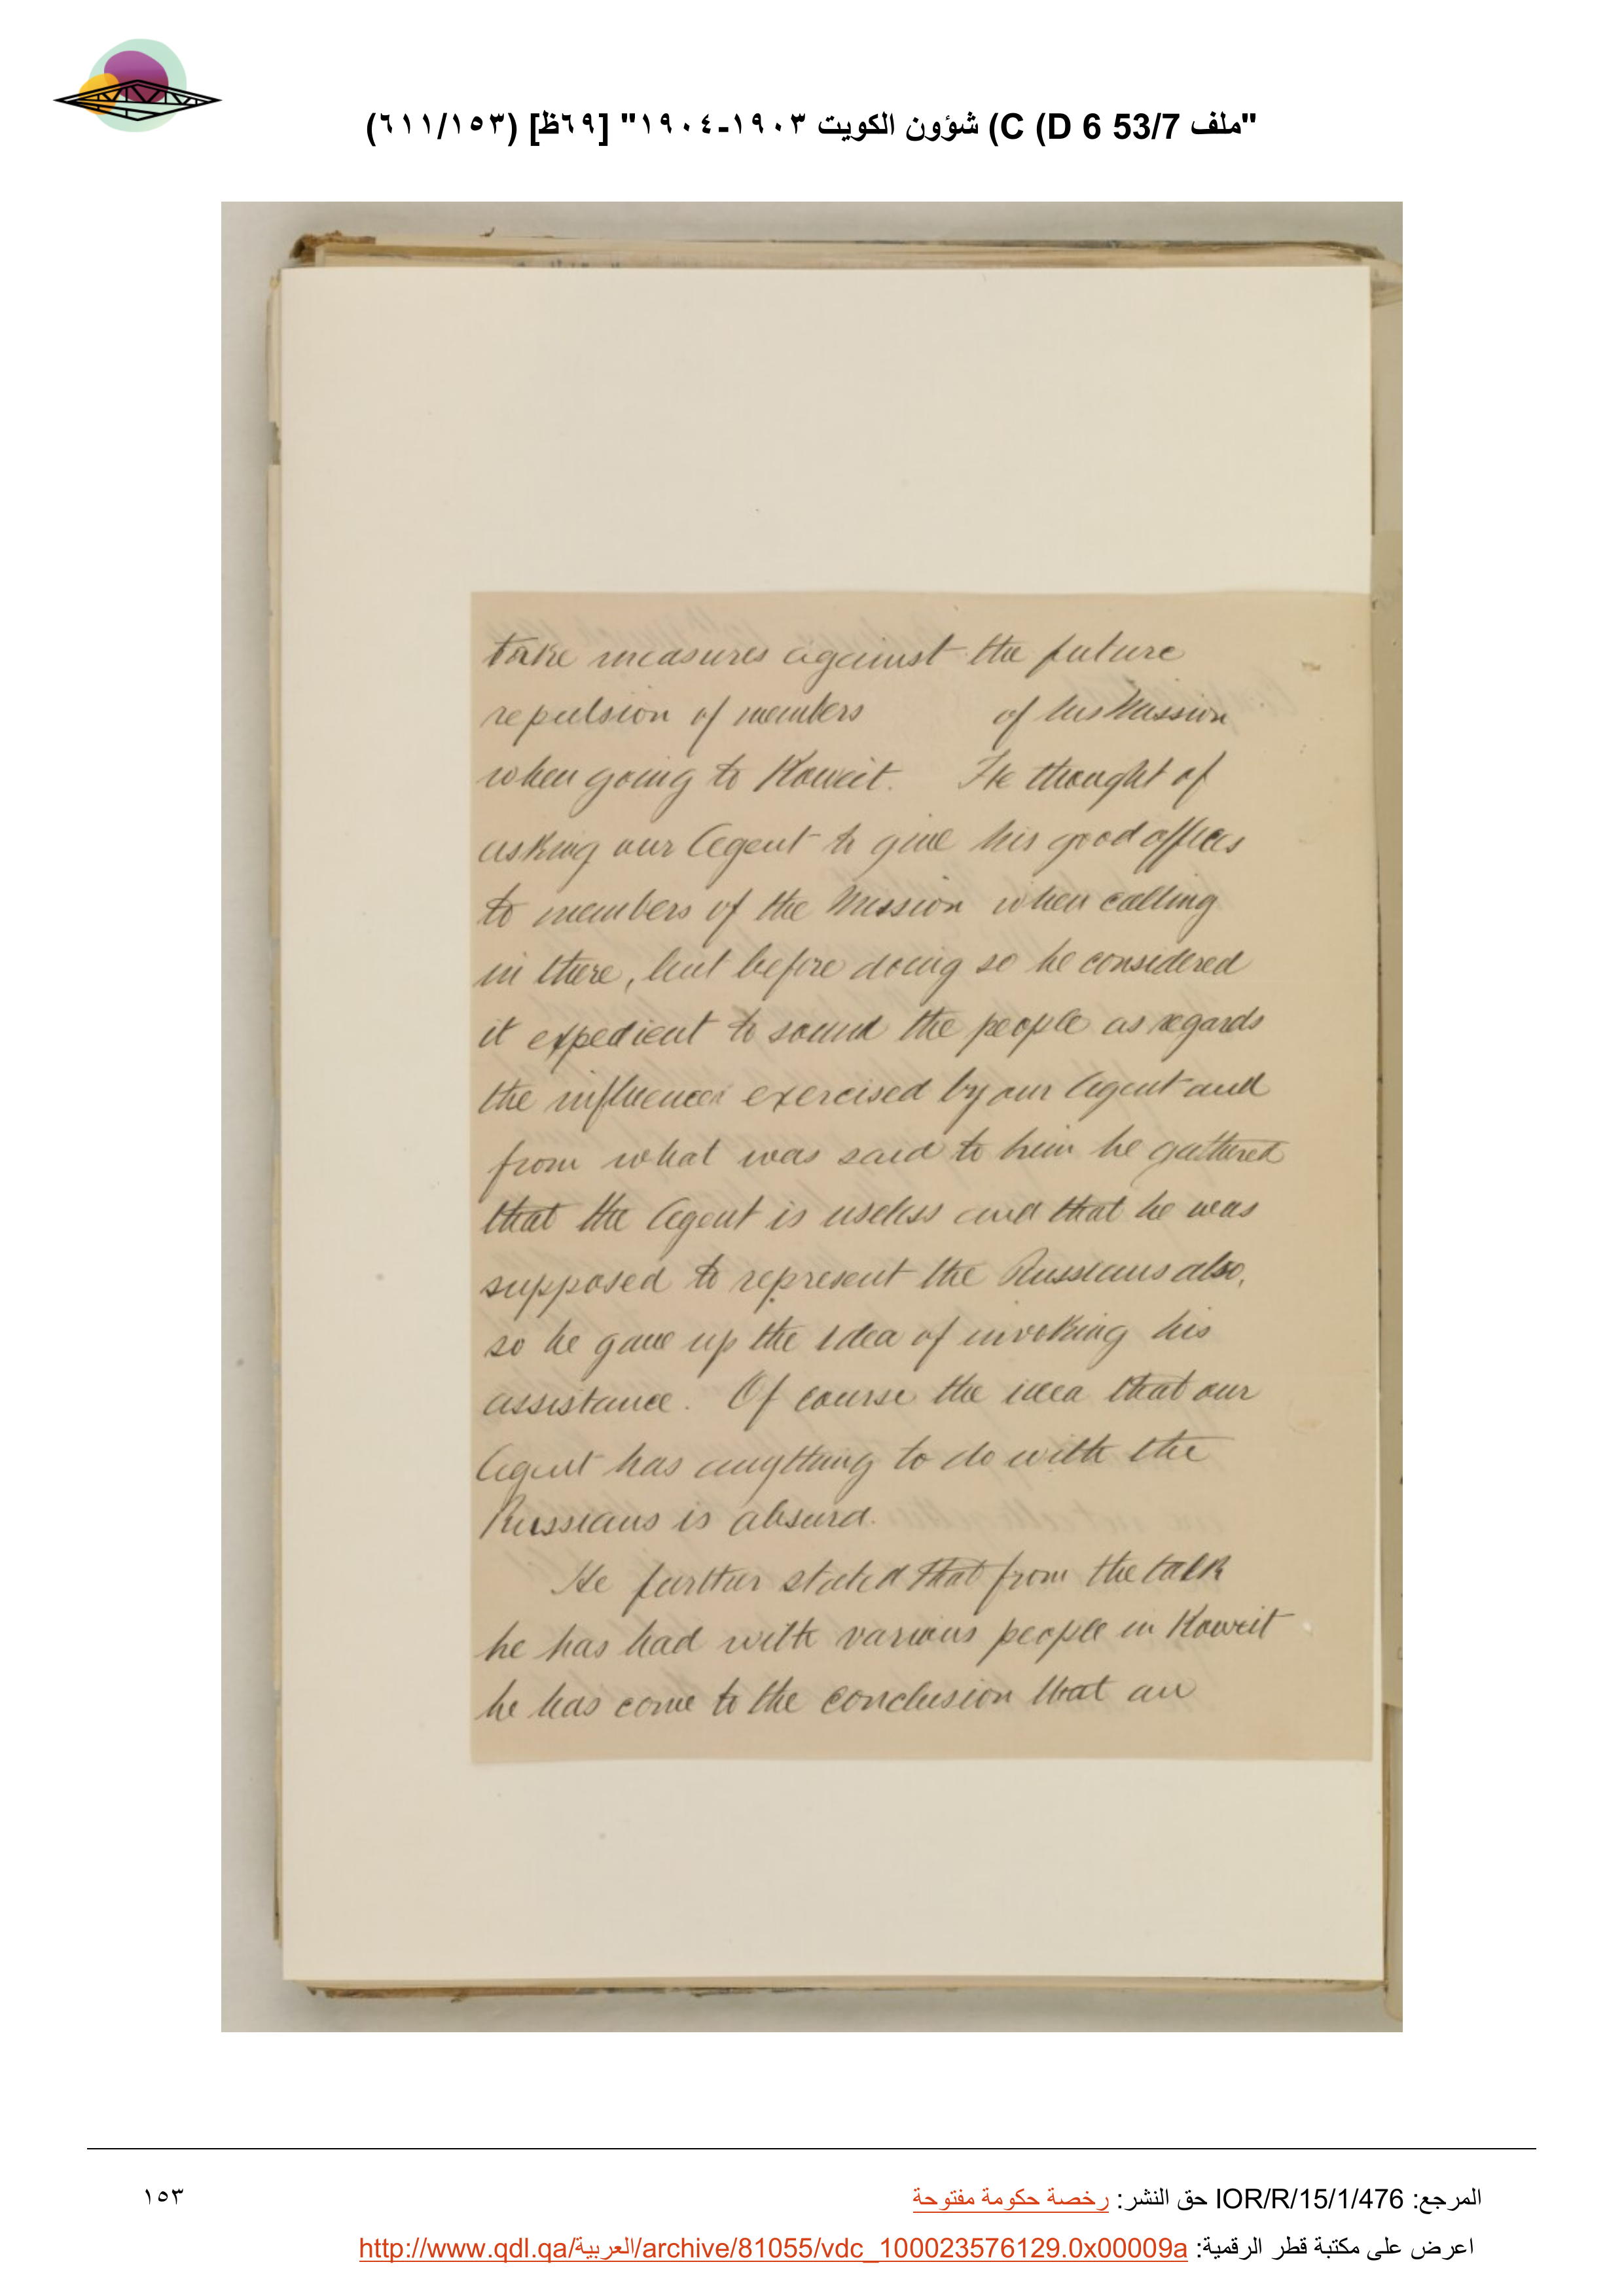 "ملف 53/7 C (D 6) شؤون الكويت ١٩٠٣-١٩٠٤" [٦٩ظ] (٦١١/١٥٣)
take measures against the future
repulsion of members of his Mission
when going to Koweit. He thought of
asking our Agent to give his good offices
to members of the Mission when calling
in there, but before doing so he considered
it expedient to sound the people as regards
the influence exercised by our Agent and
from what was said to him he gathered
that the Agent is useless and that he was
supposed to represent the Russians also,
so he gave up the idea of invoking his
assistance. Of course the idea that our
Agent has anything to do with the
Russians is absurd.
He further stated that from the talk
he has had with various people in Koweit
he has come to the conclusion that an
المرجع: IOR/R/15/1/476 حق النشر: رخصة حكومة مفتوحة
١٥٣
اعرض على مكتبة قطر الرقمية: http://www.qdl.qa/العربية/archive/81055/vdc_100023576129.0x00009a